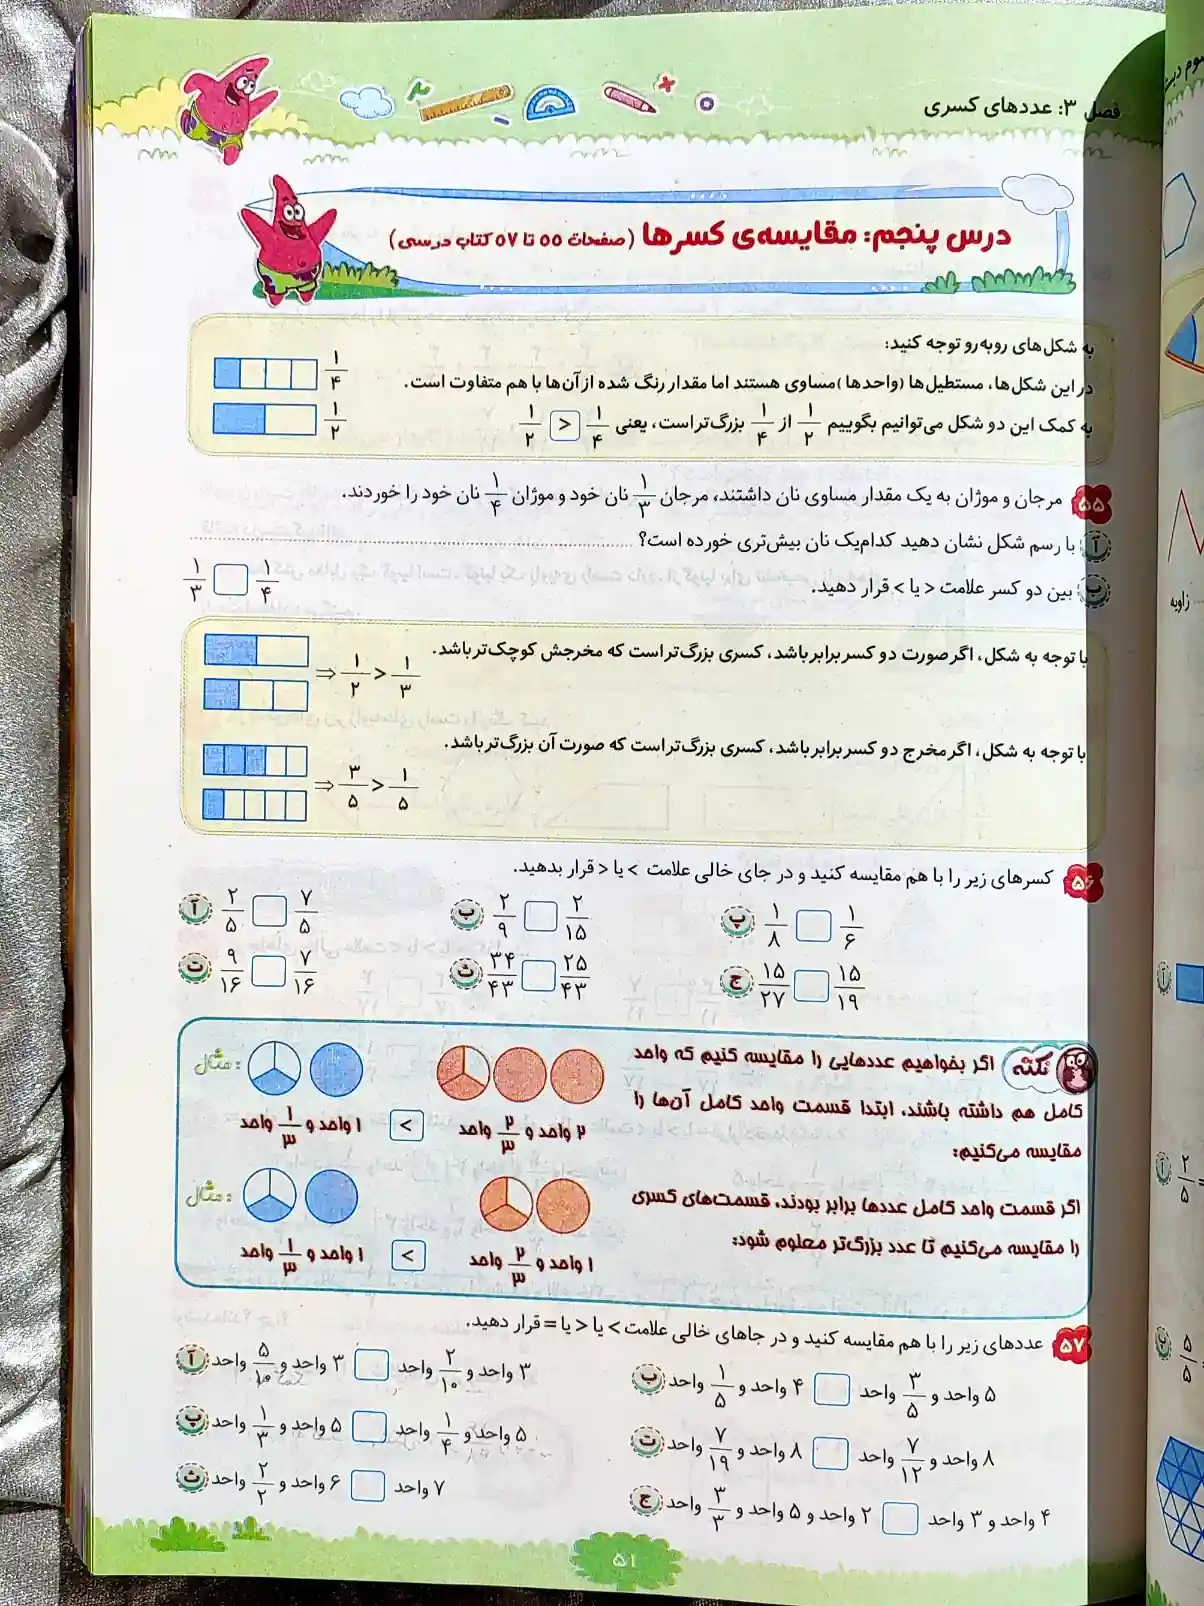 فصل ۳: عددهای کسری
درس پنجم: مقایسه‌ی کسرها (صفحات ۵۵ تا ۵۷ کتاب درسی)
به شکل‌های روبه‌رو توجه کنید:
۱/۴
در این شکل‌ها، مستطیل‌ها (واحدها) مساوی هستند اما مقدار رنگ شده از آن‌ها با هم متفاوت است.
۱/۲
به کمک این دو شکل می‌توانیم بگوییم ۱/۲ از ۱/۴ بزرگ‌تر است، یعنی ۱/۲ < ۱/۴
۵۵ مرجان و موژان به یک مقدار مساوی نان داشتند، مرجان ۱/۳ نان خود و موژان ۱/۴ نان خود را خوردند.
آ با رسم شکل نشان دهید کدام‌یک نان بیش‌تری خورده است؟
ب بین دو کسر علامت < یا > قرار دهید. ۱/۳ □ ۱/۴
با توجه به شکل، اگر صورت دو کسر برابر باشد، کسری بزرگ‌تر است که مخرجش کوچک‌تر باشد.
⇒ ۱/۲ > ۱/۳
با توجه به شکل، اگر مخرج دو کسر برابر باشد، کسری بزرگ‌تر است که صورت آن بزرگ‌تر باشد.
⇒ ۳/۵ > ۱/۵
۵۶ کسرهای زیر را با هم مقایسه کنید و در جای خالی علامت > یا < قرار بدهید.
آ ۲/۵ □ ۷/۵
ب ۲/۹ □ ۲/۱۵
پ ۱/۸ □ ۱/۶
ت ۹/۱۶ □ ۷/۱۶
ث ۳۴/۴۳ □ ۲۵/۴۳
ج ۱۵/۲۷ □ ۱۵/۱۹
نکته اگر بخواهیم عددهایی را مقایسه کنیم که واحد
کامل هم داشته باشند، ابتدا قسمت واحد کامل آن‌ها را
مقایسه می‌کنیم:
مثال:
۱ واحد و ۱/۳ واحد < ۲ واحد و ۲/۳ واحد
اگر قسمت واحد کامل عددها برابر بودند، قسمت‌های کسری
را مقایسه می‌کنیم تا عدد بزرگ‌تر معلوم شود:
مثال:
۱ واحد و ۱/۳ واحد < ۱ واحد و ۲/۳ واحد
۵۷ عددهای زیر را با هم مقایسه کنید و در جاهای خالی علامت > یا < یا = قرار دهید.
آ ۳ واحد و ۵/۱۰ واحد □ ۳ واحد و ۲/۱۰ واحد
ب ۴ واحد و ۱/۵ واحد □ ۵ واحد و ۳/۵ واحد
پ ۵ واحد و ۱/۳ واحد □ ۵ واحد و ۱/۴ واحد
ت ۸ واحد و ۷/۱۹ واحد □ ۸ واحد و ۷/۱۲ واحد
ث ۶ واحد و ۲/۲ واحد □ ۷ واحد
ج ۲ واحد و ۵ واحد و ۳/۳ واحد □ ۴ واحد و ۳ واحد
۵۱
زاویه
آ
آ ۲/۵ =
ب ۵/۵